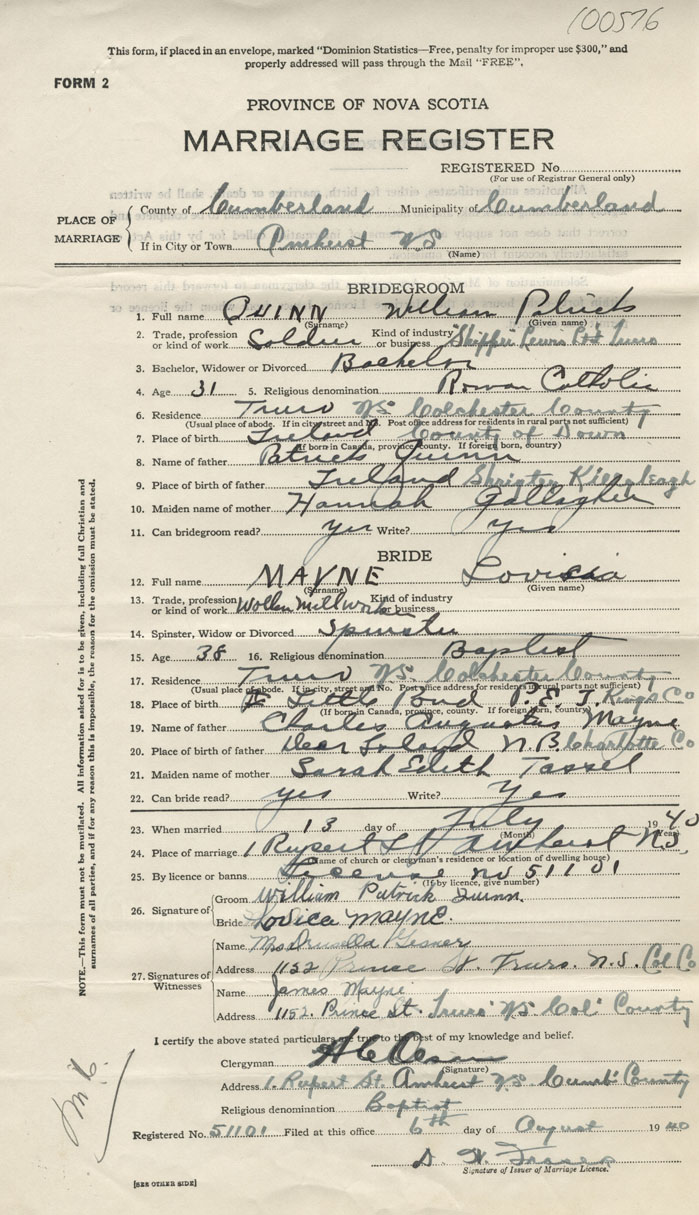 100576
This form, if placed in an envelope, marked "Dominion Statistics—Free, penalty for improper use $300," and
properly addressed will pass through the Mail "FREE".
FORM 2
PROVINCE OF NOVA SCOTIA
MARRIAGE REGISTER
REGISTERED No.
(For use of Registrar General only)
PLACE OF MARRIAGE
County of Cumberland Municipality of Cumberland
If in City or Town Amherst NS
(Name)
BRIDEGROOM
1. Full name QUINN William Patrick
(Surname) (Given name)
2. Trade, profession or kind of work Soldier Kind of industry or business
3. Bachelor, Widower or Divorced Bachelor
4. Age 31 5. Religious denomination Roman Catholic
6. Residence Truro NS Colchester County
(Usual place of abode. If in city, street and No. Post office address for residents in rural parts not sufficient)
7. Place of birth Ireland County of Down
(If born in Canada, province, county. If foreign born, country)
8. Name of father Patrick Quinn
9. Place of birth of father Ireland
10. Maiden name of mother Hannah Gallagher
11. Can bridegroom read? yes Write? yes
BRIDE
12. Full name MAYNE Lovisia
(Surname) (Given name)
13. Trade, profession or kind of work Wollen Mill Worker Kind of industry or business
14. Spinster, Widow or Divorced Spinster
15. Age 38 16. Religious denomination Baptist
17. Residence Truro NS. Colchester County
(Usual place of abode. If in city, street and No. Post office address for residents in rural parts not sufficient)
18. Place of birth Little Pond P. E. I. Kings Co
(If born in Canada, province, county. If foreign born, country)
19. Name of father Charles Augustus Mayne
20. Place of birth of father Deer Island N.B. Charlotte Co
21. Maiden name of mother Sarah Edith Tassel
22. Can bride read? yes Write? Yes
23. When married 13 day of July 1940
(Month) (Year)
24. Place of marriage 1 Rupert St Amherst N.S.
(Name of church or clergyman's residence or location of dwelling house)
25. By licence or banns License no 51101
(If by licence, give number)
26. Signature of
Groom William Patrick Quinn.
Bride Lovica Mayne.
27. Signatures of Witnesses
Name Mrs Drusella Gesner
Address 1152 Prince St. Truro. N.S. Col Co
Name James Mayne
Address 1152. Prince St. Truro NS Col' County
I certify the above stated particulars are true to the best of my knowledge and belief.
Clergyman
(Signature)
Address 1. Rupert St Amherst NS Cumb' County
Religious denomination Baptist
Registered No. 51101 Filed at this office 6th day of August 1940
D. W. Fraser
Signature of Issuer of Marriage Licence.
[SEE OTHER SIDE]
NOTE.—This form must not be mutilated. All information asked for is to be given, including full Christian and
surnames of all parties, and if for any reason this is impossible, the reason for the omission must be stated.